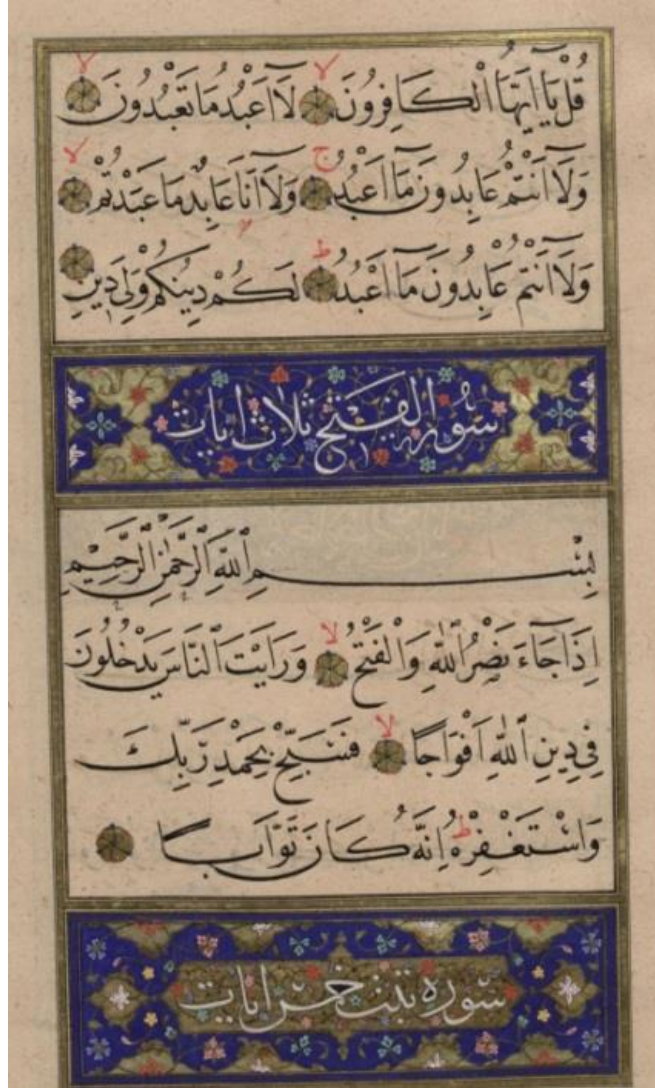 قُلْ يَٓا اَيُّهَا الْكَافِرُونَ لَٓا اَعْبُدُ مَا تَعْبُدُونَ
وَلَٓا اَنْتُمْ عَابِدُونَ مَٓا اَعْبُدُ وَلَٓا اَنَا عَابِدٌ مَا عَبَدْتُمْ
وَلَٓا اَنْتُمْ عَابِدُونَ مَٓا اَعْبُدُ لَكُمْ دِينُكُمْ وَلِيَ دِينِ
سورة الفتح ثلاث ايات
بِسْمِ ٱللّٰهِ ٱلرَّحْمٰنِ ٱلرَّحِيمِ
اِذَا جَٓاءَ نَصْرُ ٱللّٰهِ وَالْفَتْحُ وَرَاَيْتَ ٱلنَّاسَ يَدْخُلُونَ
فِي دِينِ ٱللّٰهِ اَفْوَاجًا فَسَبِّحْ بِحَمْدِ رَبِّكَ
وَاسْتَغْفِرْهُ اِنَّهُ كَانَ تَوَّابًا
سوره تبت خمس ايات